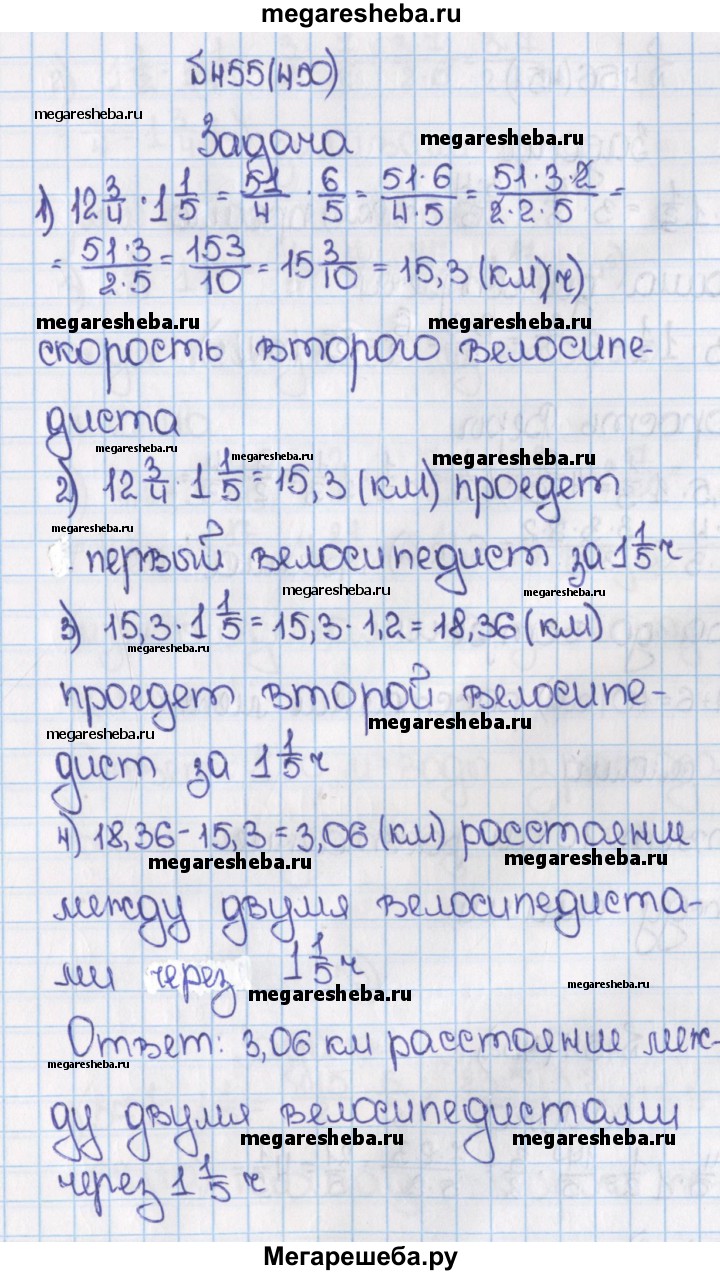 megaresheba.ru
№455(450)
megaresheba.ru
Задача megaresheba.ru
1) 12 3/4 · 1 1/5 = 51/4 · 6/5 = 51·6/4·5 = 51·3·2/2·2·5 =
= 51·3/2·5 = 153/10 = 15 3/10 = 15,3 (км/ч)
megaresheba.ru megaresheba.ru
скорость второго велосипе-
диста
megaresheba.ru megaresheba.ru megaresheba.ru
2) 12 3/4 · 1 1/5 = 15,3 (км) проедет
megaresheba.ru
первый велосипедист за 1 1/5 ч
megaresheba.ru megaresheba.ru
3) 15,3 · 1 1/5 = 15,3 · 1,2 = 18,36 (км)
megaresheba.ru
проедет второй велосипе-
megaresheba.ru megaresheba.ru
дист за 1 1/5 ч
4) 18,36 - 15,3 = 3,06 (км) расстояние
megaresheba.ru megaresheba.ru
между двумя велосипедиста-
ми через 1 1/5 ч
megaresheba.ru megaresheba.ru
Ответ: 3,06 км расстояние меж-
megaresheba.ru
ду двумя велосипедистами
megaresheba.ru megaresheba.ru
через 1 1/5 ч
Мегарешеба.ру